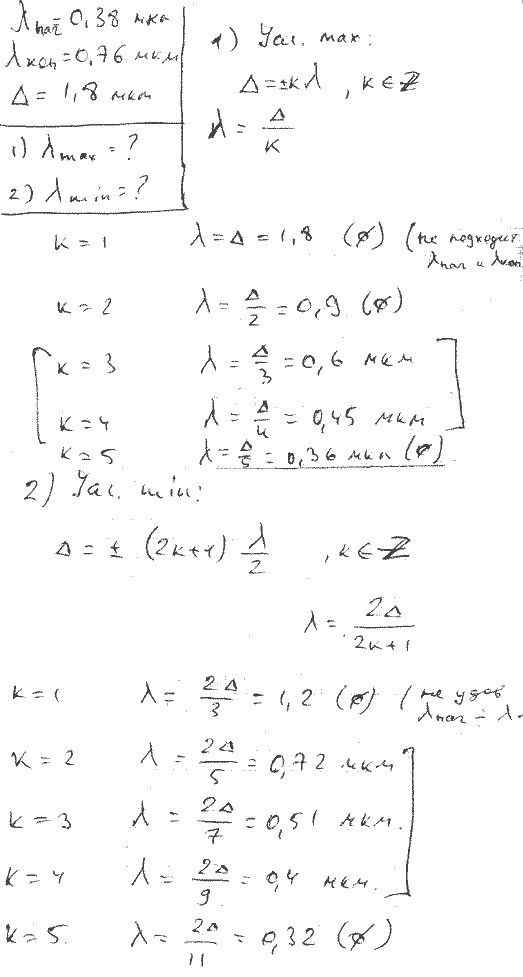 λнач = 0,38 мкм
λкон = 0,76 мкм
Δ = 1,8 мкм
1) λmax = ?
2) λmin = ?
1) Усл. max:
Δ = ±kλ , k ∈ Z
λ = Δ/k
k = 1 λ = Δ = 1,8 (∅) (не подходит
λнач и λкон
k = 2 λ = Δ/2 = 0,9 (∅)
k = 3 λ = Δ/3 = 0,6 мкм
k = 4 λ = Δ/4 = 0,45 мкм
k = 5 λ = Δ/5 = 0,36 мкм (∅)
2) Усл. min:
Δ = ± (2k+1) λ/2 , k ∈ Z
λ = 2Δ/2k+1
k = 1 λ = 2Δ/3 = 1,2 (∅) (не удов
λнач – λ
k = 2 λ = 2Δ/5 = 0,72 мкм
k = 3 λ = 2Δ/7 = 0,51 мкм.
k = 4 λ = 2Δ/9 = 0,4 мкм.
k = 5. λ = 2Δ/11 = 0,32 (∅)